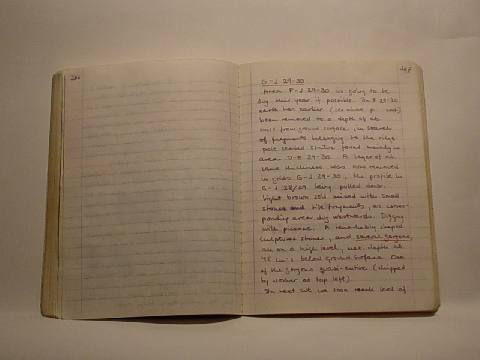 266
267
G-J 29-30
Area F-J 29-30 is going to be
dug this year if possible. In F 29-30
earth has earlier (see above p.
been removed to a depth of ab.
from ground surface, in search
of fragments belonging to the
seated statue found nearby in
area D-E 29-30. A layer of ab.
same thickness was now removed
in grids G-J 29-30, the profile in
G-J 28/29 being pulled down.
Light brown soil mixed with small
stones and tile fragments, as
ponding area dug westwards. Digging
with pickaxe. A remarkably shaped
sculptured stone, and several gorgons,
all on a high level, not depth at
45 cm:s below ground surface. One
of the gorgons quasi-entire (chipped
by worker at top left).
In next unit we soon reach level of